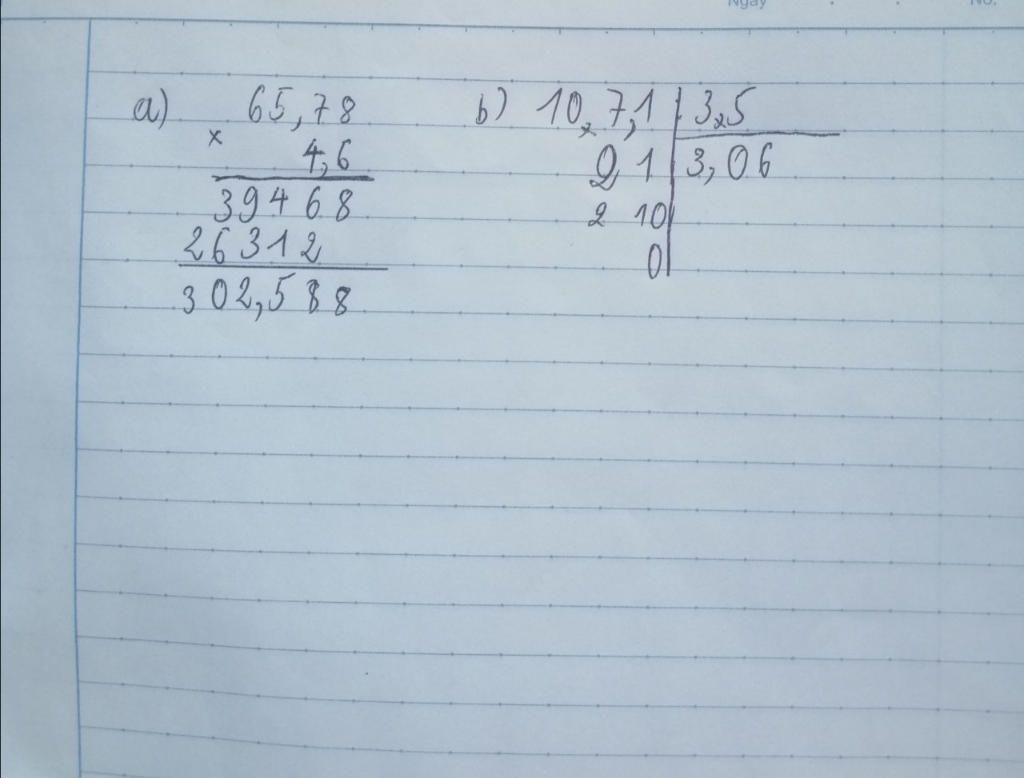 Ngày No.
a) 65,78
x
4,6
39468
26312
302,588
b) 10,7,1 3,5
2 1 3,06
2 10
0